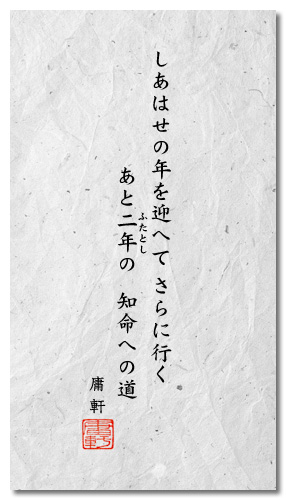 しあはせの年を迎へて さらに行く
あと二年の 知命への道
ふたとし
庸軒
庸軒